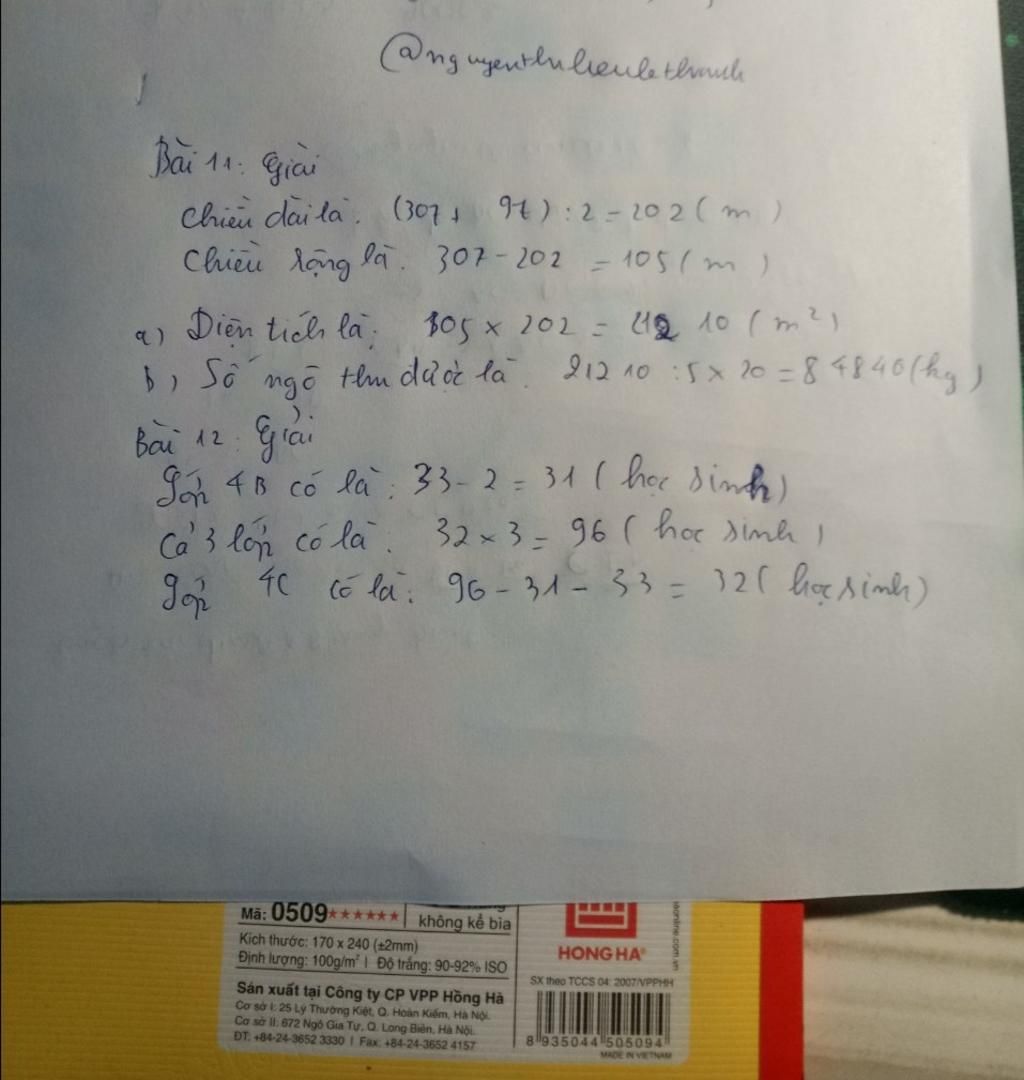 @nguyenthuhienlethanh
Bài 11: Giải
Chiều dài là: (307 + 97) : 2 = 202 (m)
Chiều rộng là: 307 - 202 = 105 (m)
a) Diện tích là: 105 x 202 = 212 10 (m²)
b) Số ngô thu được là: 212 10 : 5 x 20 = 84840 (kg)
Bài 12: Giải
lớp 4B có là: 33 - 2 = 31 (học sinh)
Cả 3 lớp có là: 32 x 3 = 96 (học sinh)
lớp 4C có là: 96 - 31 - 33 = 32 (học sinh)
Mã: 0509★★★★★★
không kể bìa
Kích thước: 170 x 240 (±2mm)
Định lượng: 100g/m² I Độ trắng: 90-92% ISO
Sản xuất tại Công ty CP VPP Hồng Hà
Cơ sở I: 25 Lý Thường Kiệt, Q. Hoàn Kiếm, Hà Nội.
Cơ sở II: 672 Ngô Gia Tự, Q. Long Biên, Hà Nội.
ĐT: +84-24-3652 3330 I Fax: +84-24-3652 4157
HONG HA®
SX theo TCCS 04: 2007/VPPHH
8 935044 505094
MADE IN VIETNAM